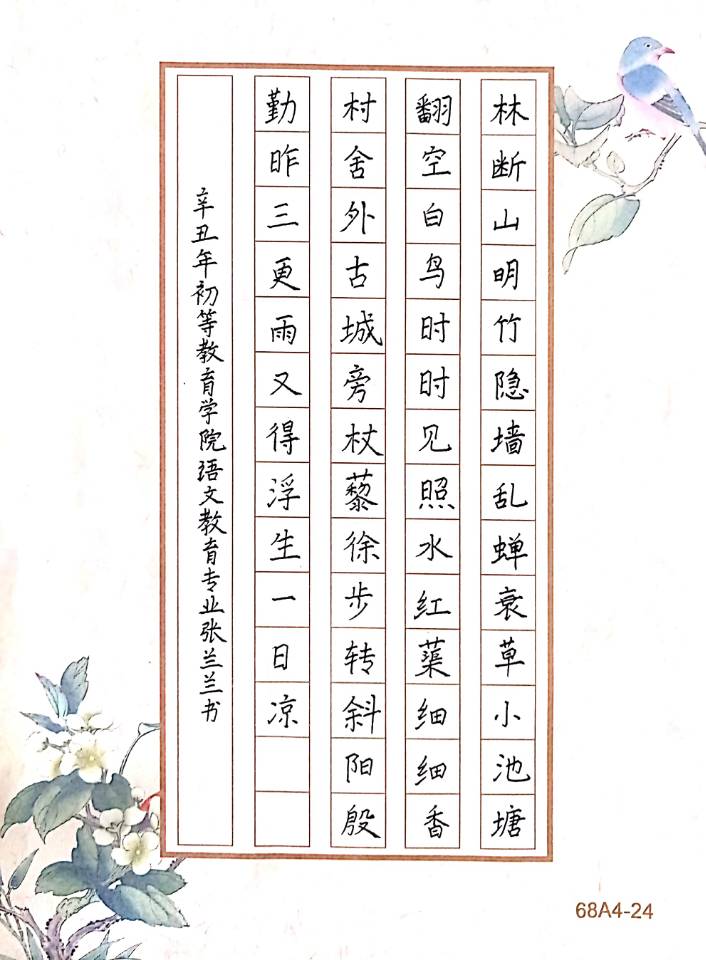 林断山明竹隐墙乱蝉衰草小池塘
翻空白鸟时时见照水红蕖细细香
村舍外古城旁杖藜徐步转斜阳殷
勤昨三更雨又得浮生一日凉
辛丑年初等教育学院语文教育专业张兰兰书
68A4-24